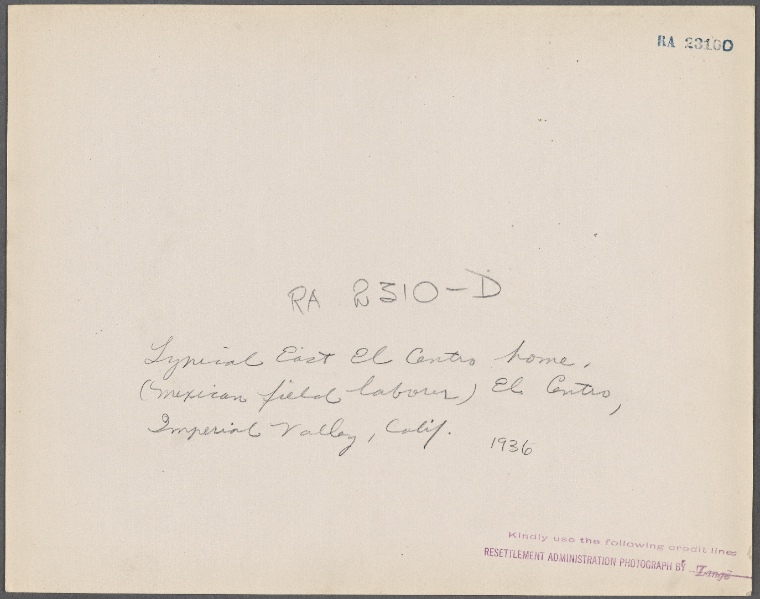 RA 23100
RA 2310-D
Typical East El Centro home.
(Mexican field laborer) El Centro,
Imperial Valley, Calif.
1936
Kindly use the following credit line:
RESETTLEMENT ADMINISTRATION PHOTOGRAPH BY Lange